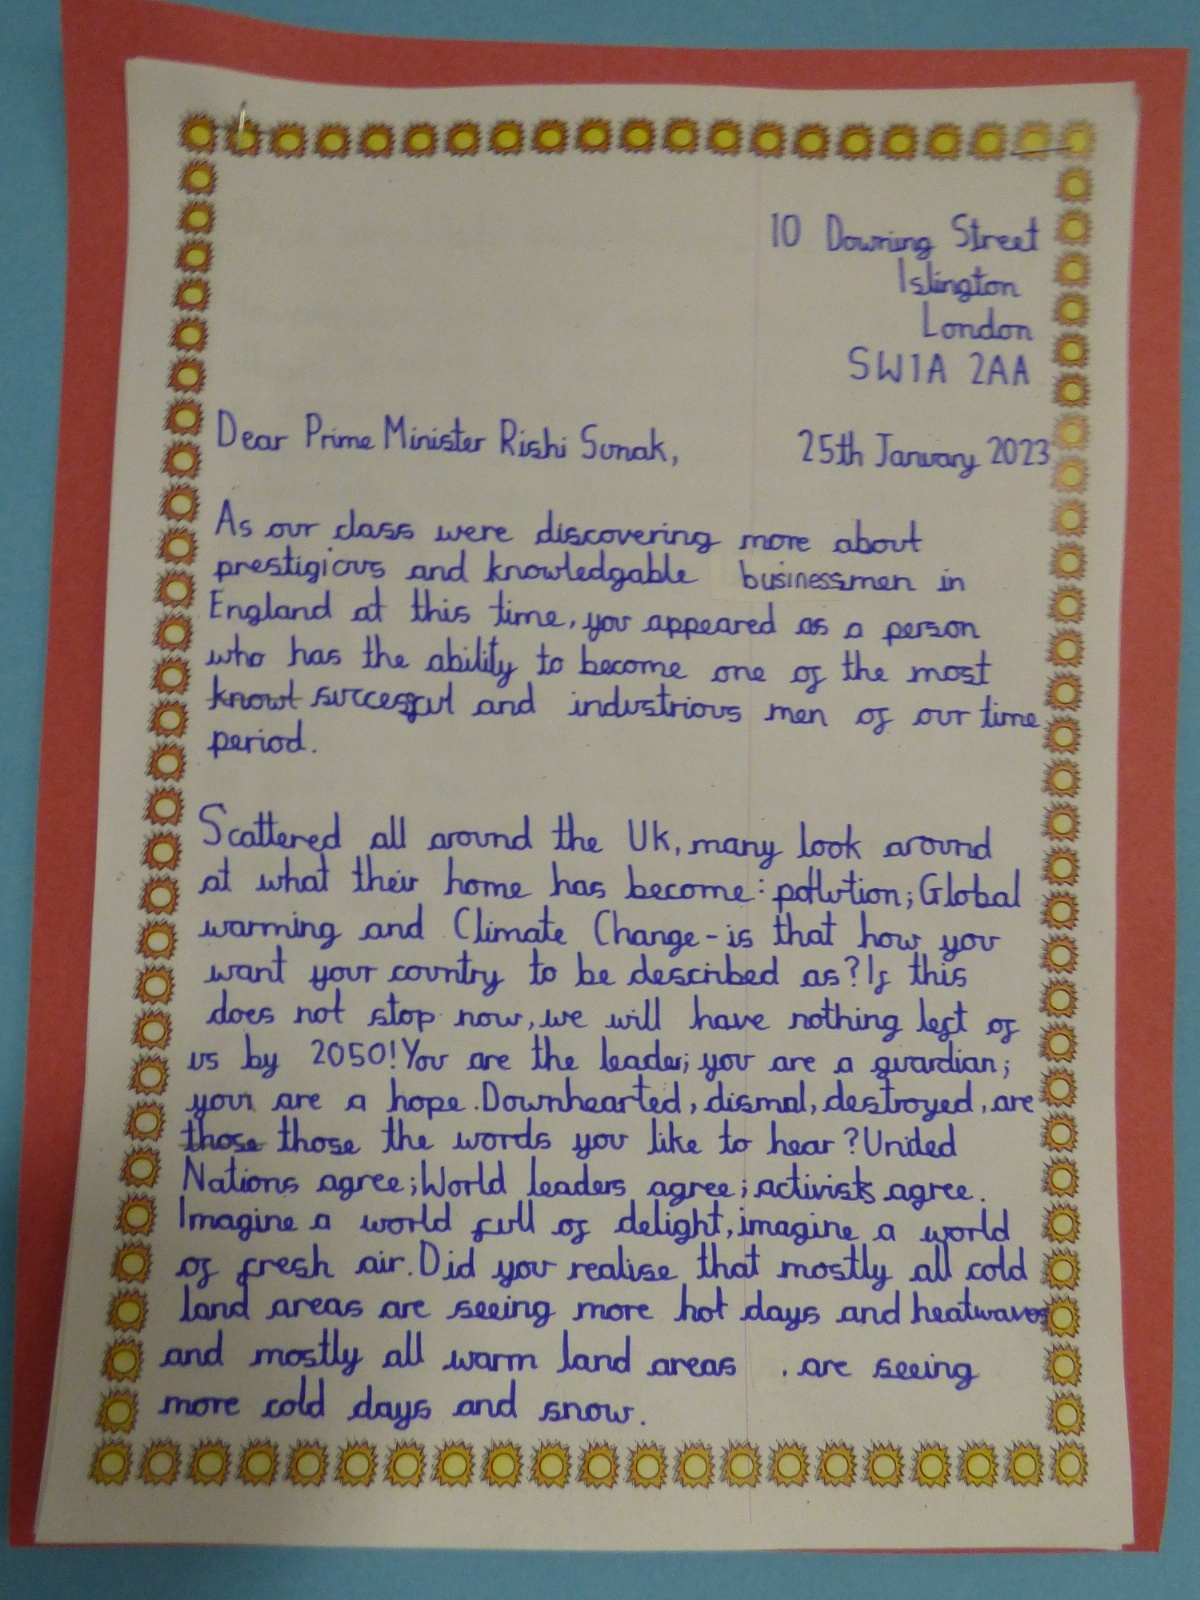 10 Downing Street
Islington
London
SW1A 2AA
Dear Prime Minister Rishi Sunak,
25th January 2023
As our class were discovering more about
prestigious and knowledgable businessmen in
England at this time, you appeared as a person
who has the ability to become one of the most
knowt successful and industrious men of our time
period.
Scattered all around the UK, many look around
at what their home has become: pollution; Global
warming and Climate Change - is that how you
want your country to be described as? If this
does not stop now, we will have nothing left of
us by 2050! You are the leader; you are a guardian;
your are a hope. Downhearted, dismal, destroyed, are
those those the words you like to hear? United
Nations agree; World leaders agree; activists agree.
Imagine a world full of delight, imagine a world
of fresh air. Did you realise that mostly all cold
land areas are seeing more hot days and heatwaves
and mostly all warm land areas , are seeing
more cold days and snow.